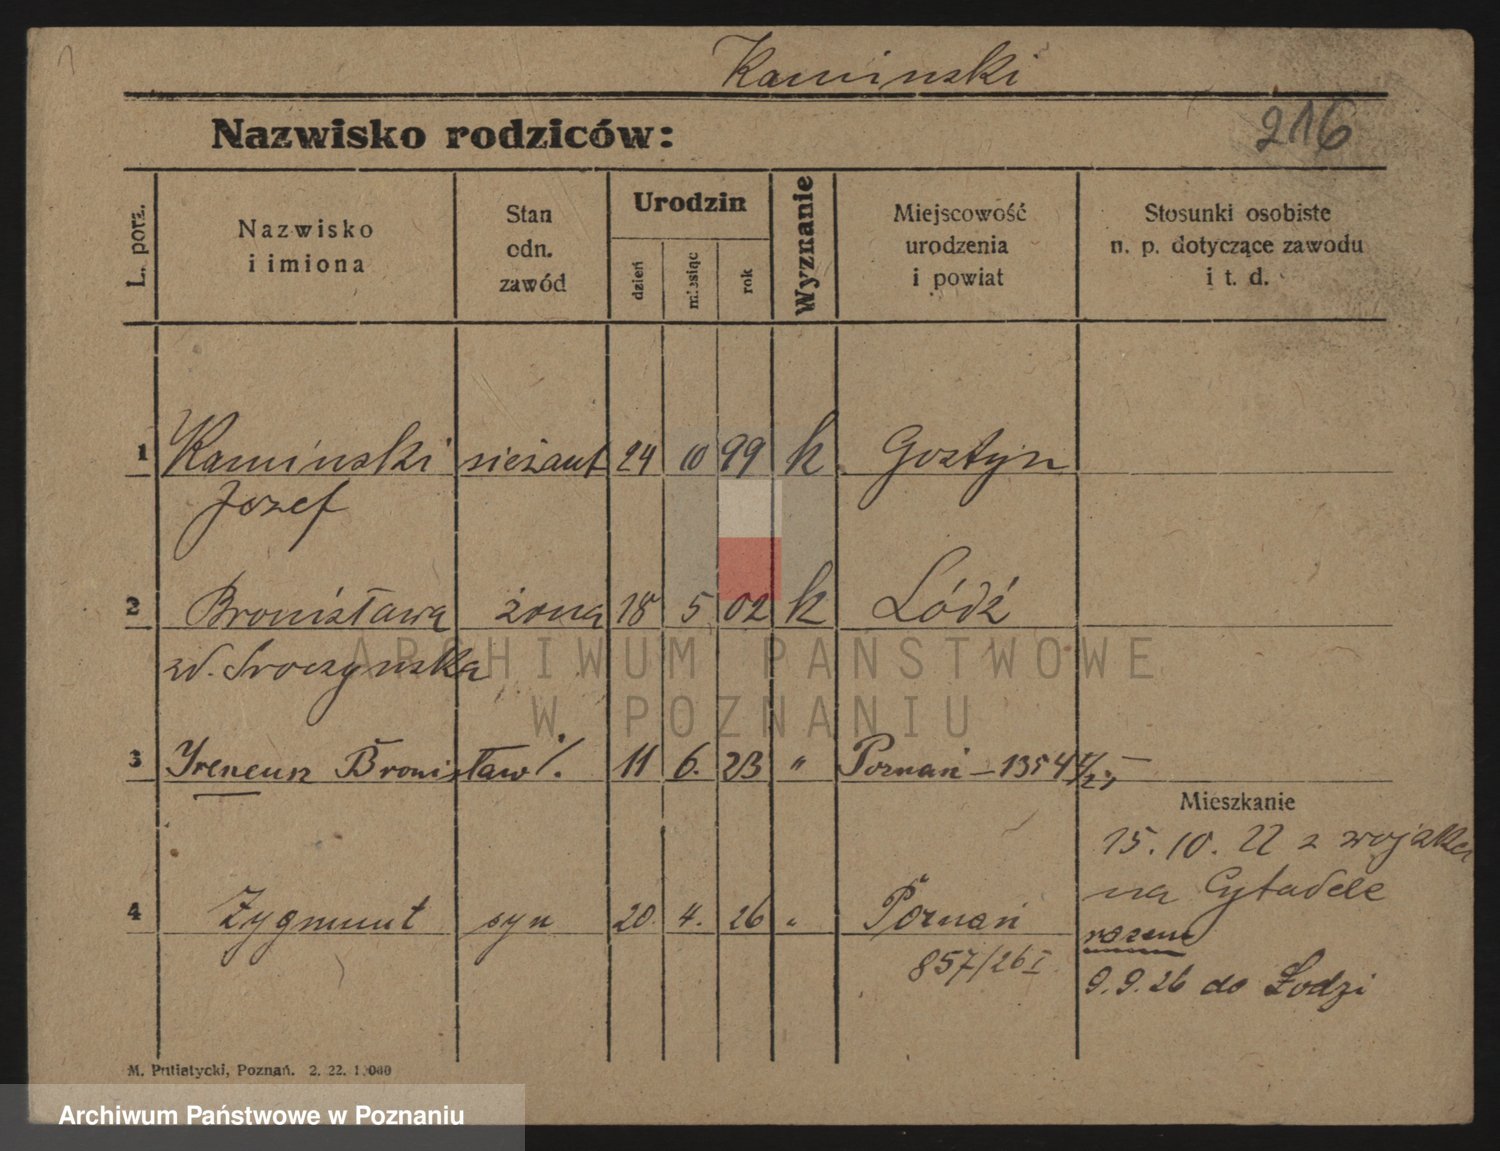 1
Kaminski
Nazwisko rodziców:
216
L. porz.
Nazwisko
i imiona
Stan
odn.
zawód
Urodzin
dzień
miesiąc
rok
Wyznanie
Miejscowość
urodzenia
i powiat
Stosunki osobiste
n. p. dotyczące zawodu
i t. d.
1 Kaminski sieżant 24 10 99 k Gostyn
Jozef
2 Bronisława żona 18 5 02 k Łódź
zd. Sroczynska
3 Ireneusz Bronisław /. 11 6. 23 " Poznań – 1354
Mieszkanie
15.10.22 z wojska
na Cytadele
4 Zygmunt syn 20. 4. 26 " Poznań
razem
857/26 I
9.9.26 do Łodzi
M. Putiatycki, Poznań. 2. 22.
ARCHIWUM PAŃSTWOWE
W POZNANIU
Archiwum Państwowe w Poznaniu